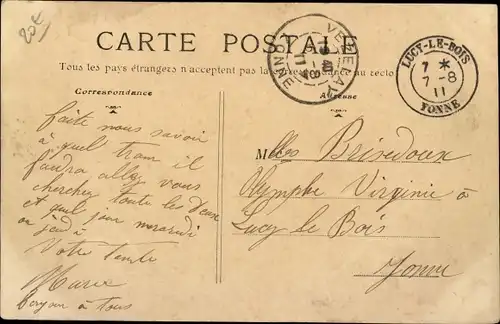 20€
CARTE POSTALE
Tous les pays étrangers n'acceptent pas la correspondance au recto
Correspondance
Adresse
VEZELAY
YONNE
LUCY-LE-BOIS
7 *
7-8
11
YONNE
faite nous savoir
à quel tram il
faudra allez vous
cherchez toute les deux
et quel jour mercredi
ou jeudi
Votre tante
Marie
Bonjour à tous
Melles Brisedoux
Olymphe Virginie à
Lucy le Bois
Yonne